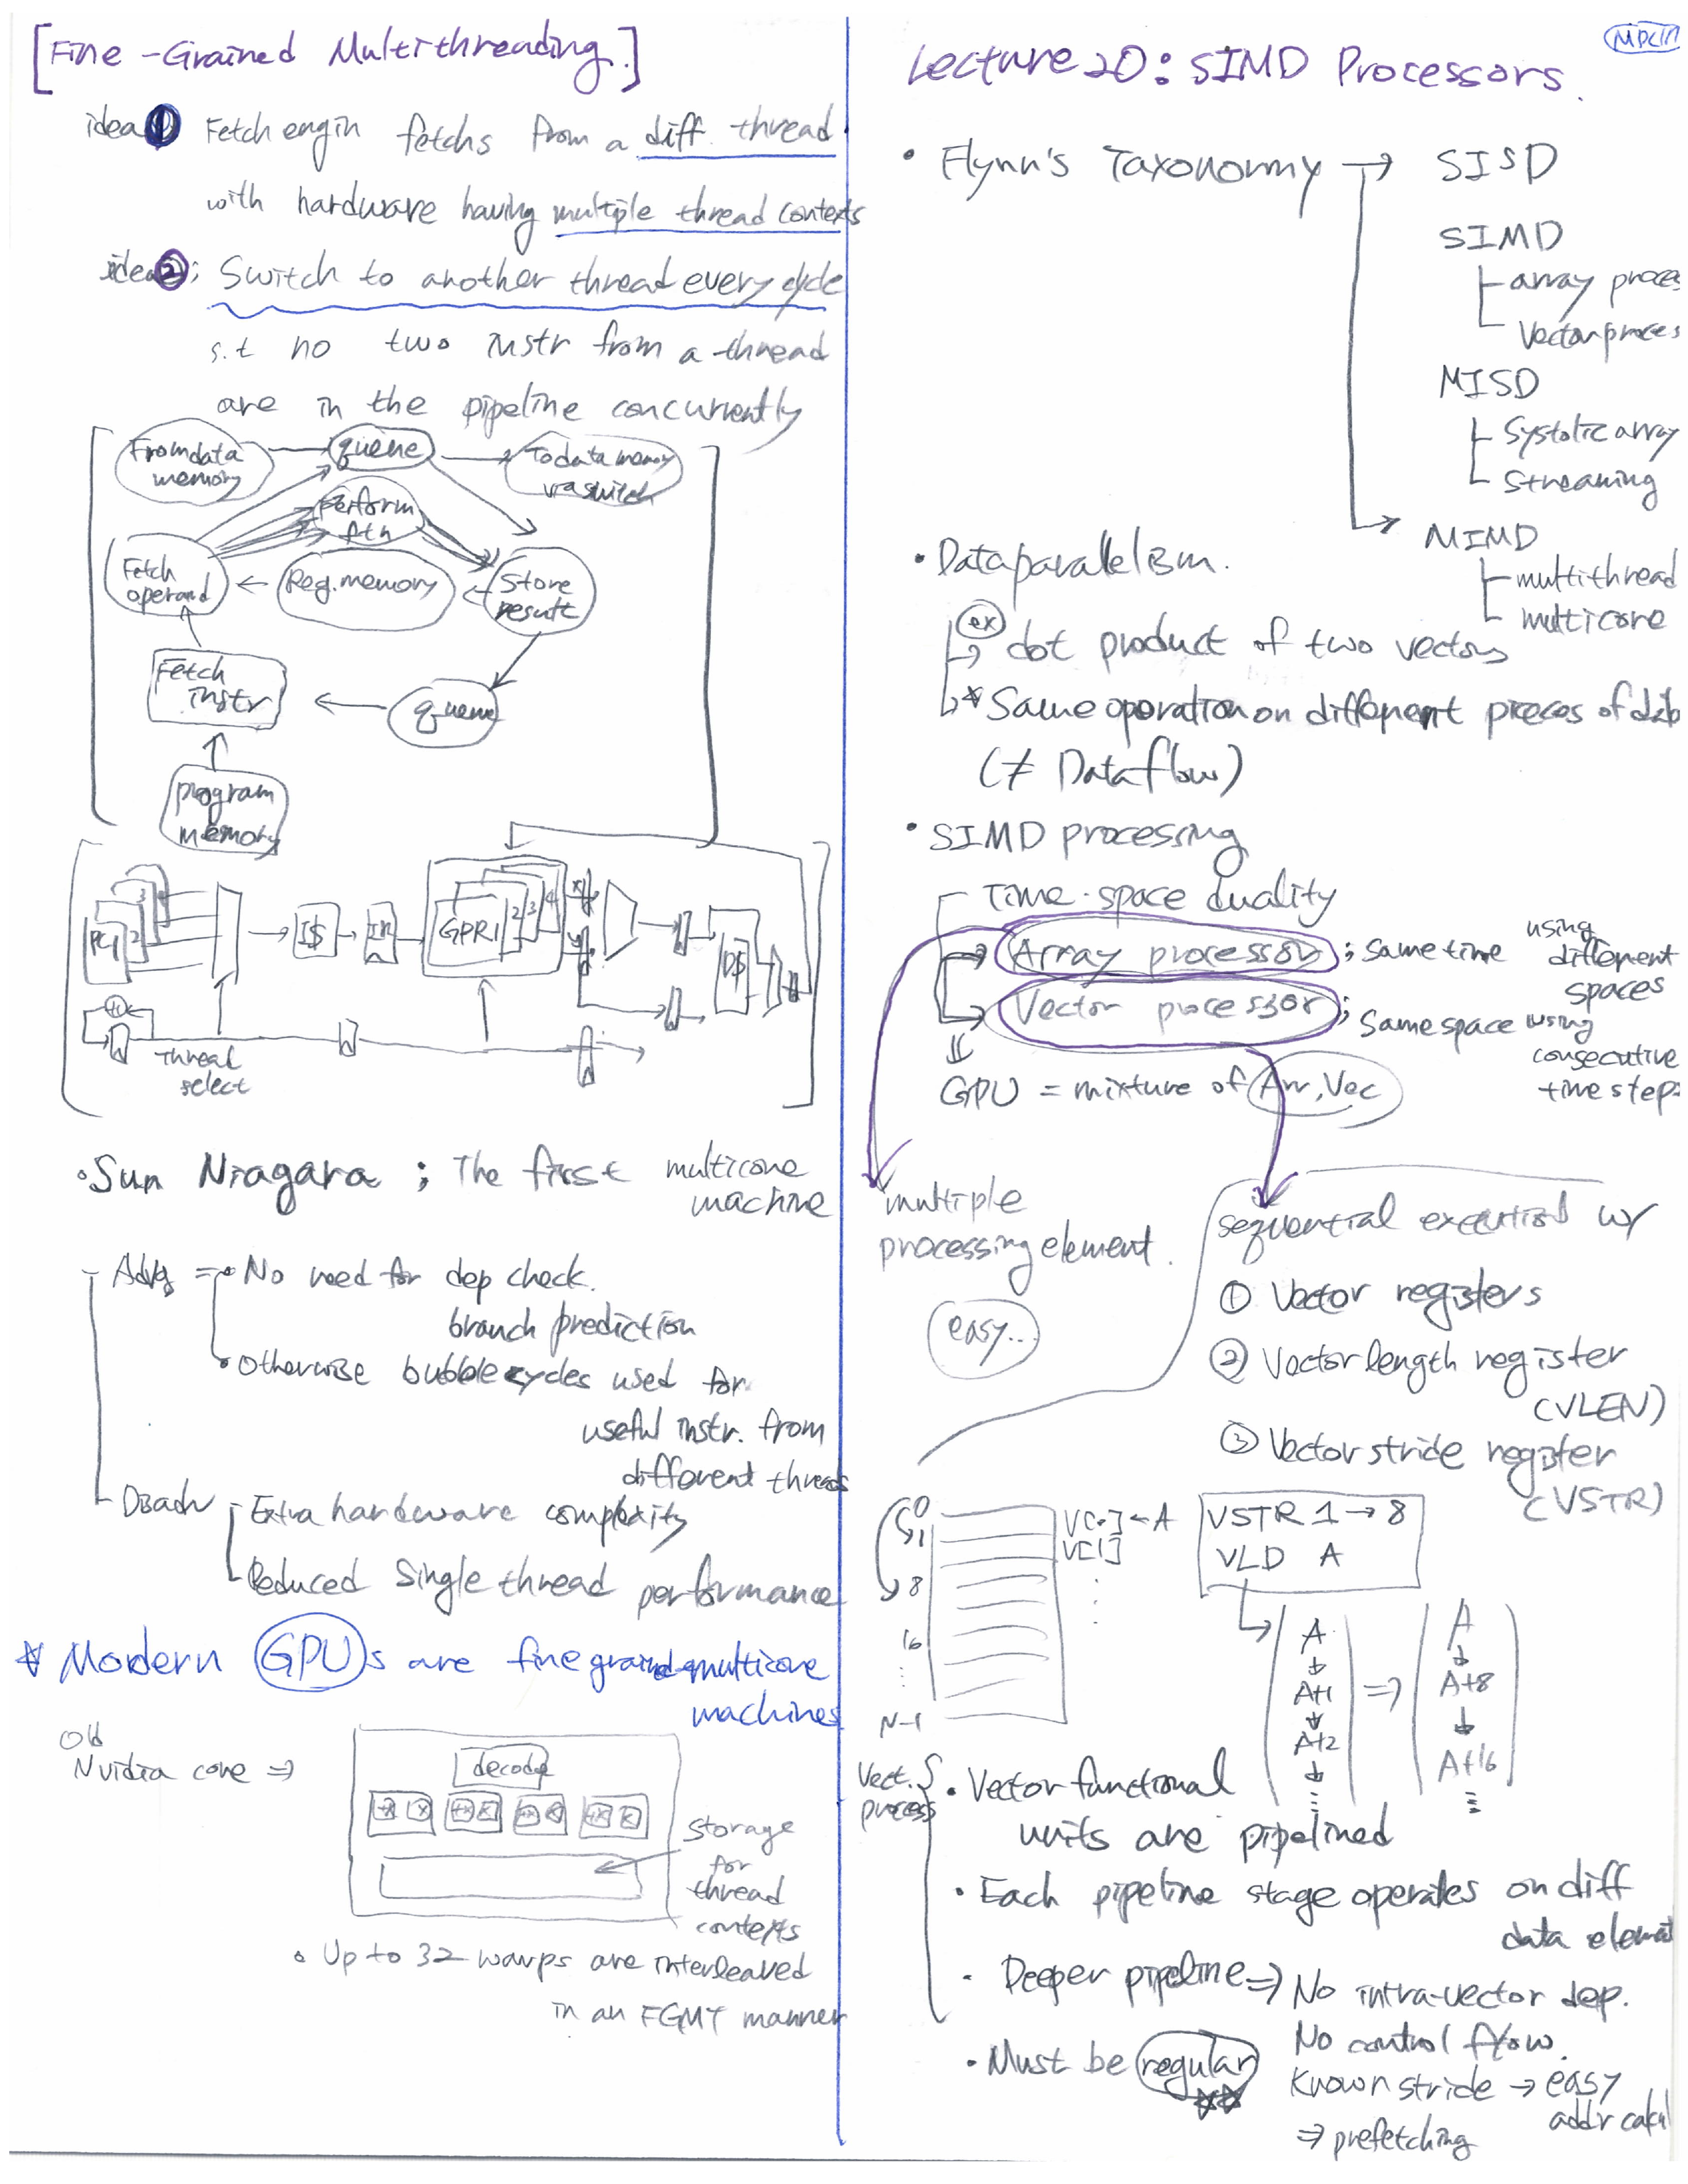 [Fine-Grained Multithreading.]
idea 1 Fetch engin fetchs from a diff. thread
with hardware having multiple thread contexts
idea 2; Switch to another thread every cycle
s.t no two instr from a thread
are in the pipeline concurrently
From data
memory
queue
To data memory
via switch
Perform
ftn
Fetch
operand
Reg. memory
Store
result
Fetch
instr
queue
program
memory
PC1 2 3 4
I$
IR
GPR1 2 3 4
X
Y
D$
+1
Thread
select
• Sun Niagara ; The first multicore
machine
Advg = • No need for dep check.
branch prediction
• Otherwise bubble cycles used for
useful instr. from
different threads
Disadv Extra hardware complexity
Reduced Single thread performance
* Modern GPUs are fine grained multicore
machines
Old
Nvidia core ⇒
decode
Storage
for
thread
contexts
• Up to 32 warps are interleaved
in an FGMT manner
Lecture 20: SIMD Processors.
• Flynn's Taxonomy → SISD
SIMD
array proces
Vector proces
MISD
Systolic array
Streaming
MIMD
multithread
multicore
• Data parallelism.
ex
dot product of two vectors
* Same operation on different pieces of data
(≠ Dataflow)
• SIMD processing
Time-space duality
Array processor ; Same time using
different
spaces
Vector processor ; Same space using
consecutive
time step
GPU = mixture of Arr, Vec
multiple
processing element.
easy..
sequential execution w/
① Vector registers
② Vector length register
(VLEN)
③ Vector stride register
(VSTR)
0
1
8
16
N-1
V[0] ← A
V[1]
VSTR 1 → 8
VLD A
A
A+1
A+2
⇒
A
A+8
A+16
Vect.
process
• Vector functional
units are pipelined
• Each pipeline stage operates on diff
data element
• Deeper pipeline ⇒ No intra-vector dep.
No control flow.
• Must be regular
Known stride → easy
addr calcul
⇒ prefetching